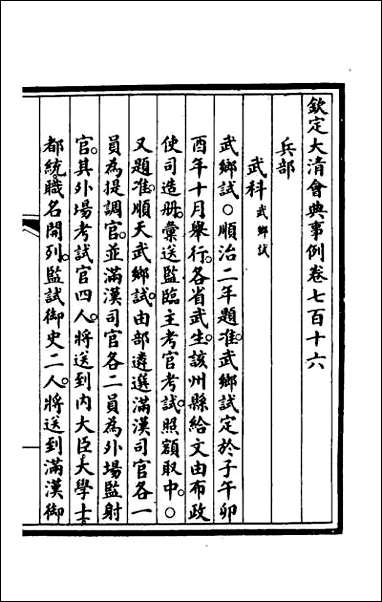 欽定大清會典事例卷七百十六
兵部
武科武鄉試
武鄉試○順治二年題准武鄉試定於子午卯
酉年十月舉行各省武生該州縣給文由布政
使司造册彙送監臨主考官考試照額取中○
又題准順天武鄉試由部遴選滿漢司官各一
員為提調官並滿漢司官各二員為外場監射
官其外場考試官四人將送到內大臣大學士
都統職名開列監試御史二人將送到滿漢御